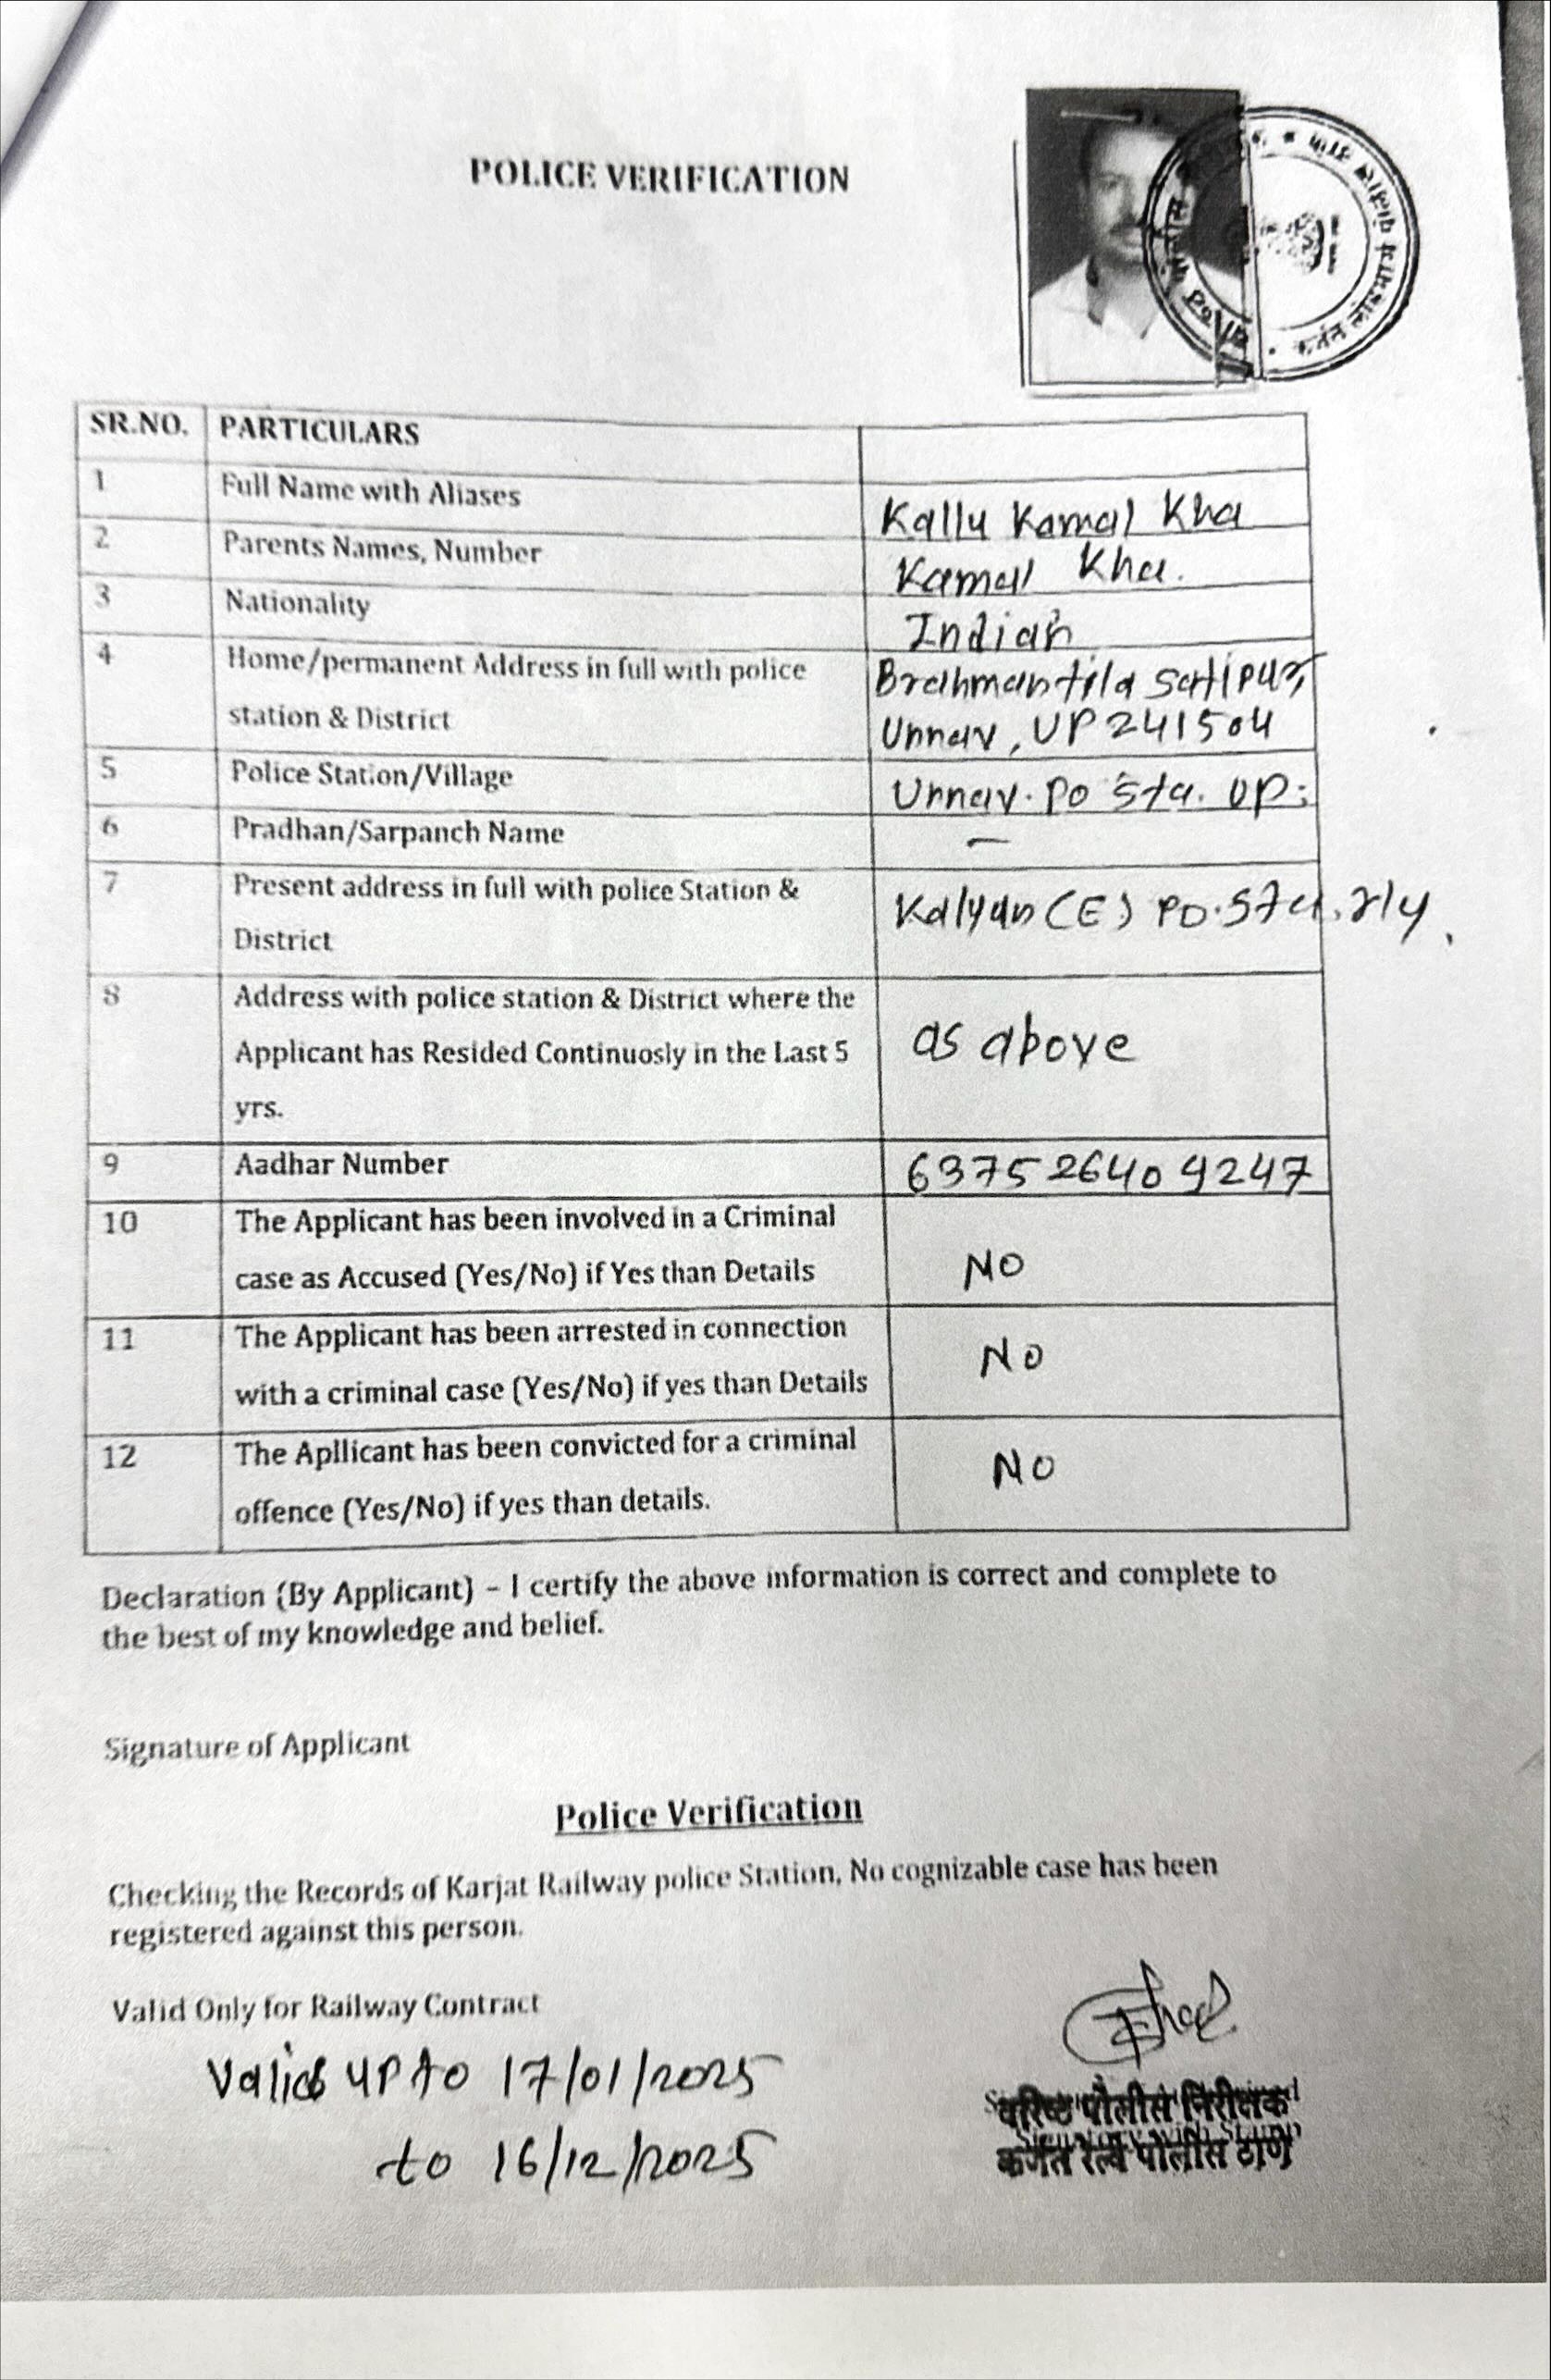 POLICE VERIFICATION
SR.NO. PARTICULARS
1 Full Name with Aliases Kallu Kamal Kha
2 Parents Names, Number Kamal Kha.
3 Nationality Indian
4 Home/permanent Address in full with police station & District Brahmantila Satipur, Unnav, UP 241504
5 Police Station/Village Unnav. Po Sta. UP.
6 Pradhan/Sarpanch Name —
7 Present address in full with police Station & District Kalyan (E) Po. Sta. rly.
8 Address with police station & District where the Applicant has Resided Continuosly in the Last 5 yrs. as above
9 Aadhar Number 6375 2640 9247
10 The Applicant has been involved in a Criminal case as Accused (Yes/No) if Yes than Details NO
11 The Applicant has been arrested in connection with a criminal case (Yes/No) if yes than Details NO
12 The Apllicant has been convicted for a criminal offence (Yes/No) if yes than details. NO
Declaration (By Applicant) – I certify the above information is correct and complete to
the best of my knowledge and belief.
Signature of Applicant
Police Verification
Checking the Records of Karjat Railway police Station, No cognizable case has been
registered against this person.
Valid Only for Railway Contract
Valid upto 17/01/2025
to 16/12/2025
वरिष्ठ पोलीस निरीक्षक
कर्जत रेल्वे पोलीस ठाणे